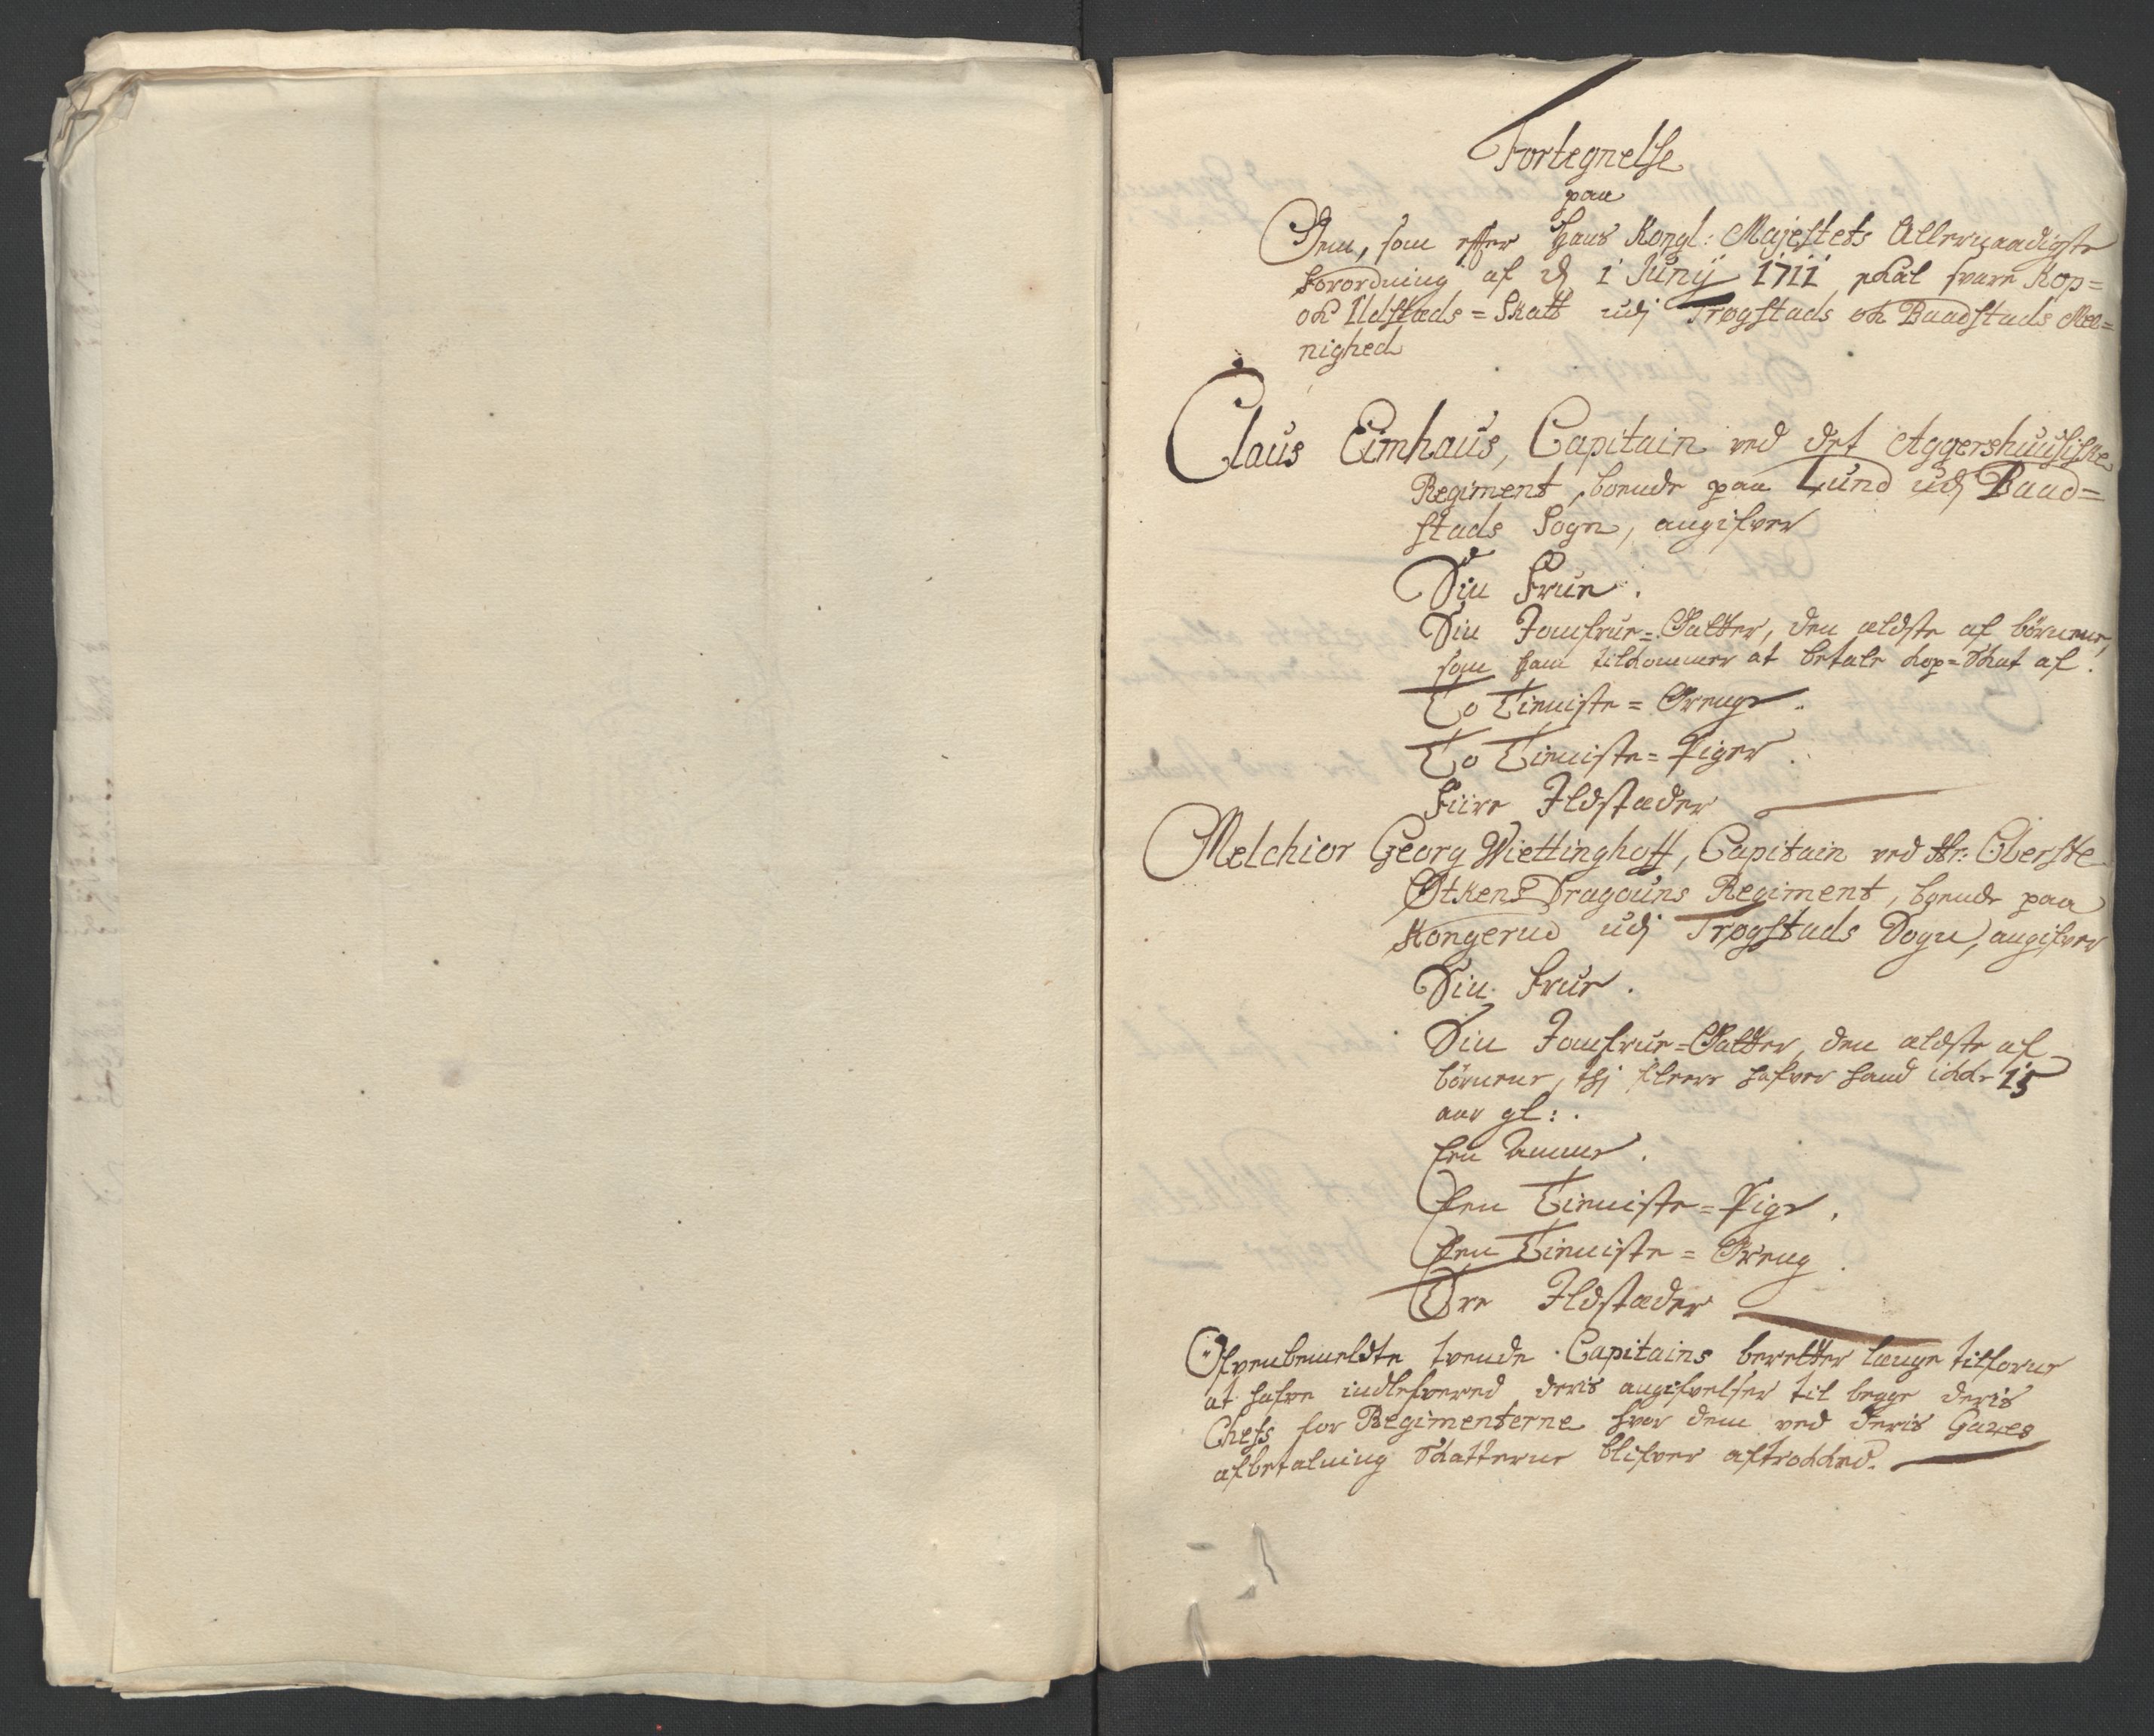 Fortegnelse
paa
Dem, som effter Hans Kongl: Majestets Allernaadigste
forordning af d. 1 Junij 1711 skal svare Kop=
och Ildstæds = Skatt udj Trøgstads och Baadstads Mee=
nighed
Claus Eimhaus, Capitain ved det Aggershuusiske
Regiment, boende paa Lund udj Baad=
stads Sogn, angifver
Sin Frue.
Sin Jomfrue-Datter, den ældste af börnene,
som ham tilkommer at betale kop-Skat af.
To Tieniste = Drenge.
To Tieniste = Piger.
Fiire Ildstæder
Melchior Georg Wiettinghoff, Capitain ved Hr: Oberste
Øtkens Dragouns Regiment, boende paa
Kongerud udj Trøgstads Sogn, angifver
Sin Frue.
Sin Jomfrue-Datter, den ældste af
börnene, thj fleere hafver hand icke 15
aar gl:.
Een Amme.
Een Tieniste = Pige.
Een Tieniste = Dreng.
Tre Ildstæder
Ofvenbemeldte tvende Capitains beretter længe tilforne
at hafve indlefvered deris angifvelser til begge deris
Chefs for Regimenterne hvor dem ved deris Gages
afbetalning Skatterne blifver aftrocked.